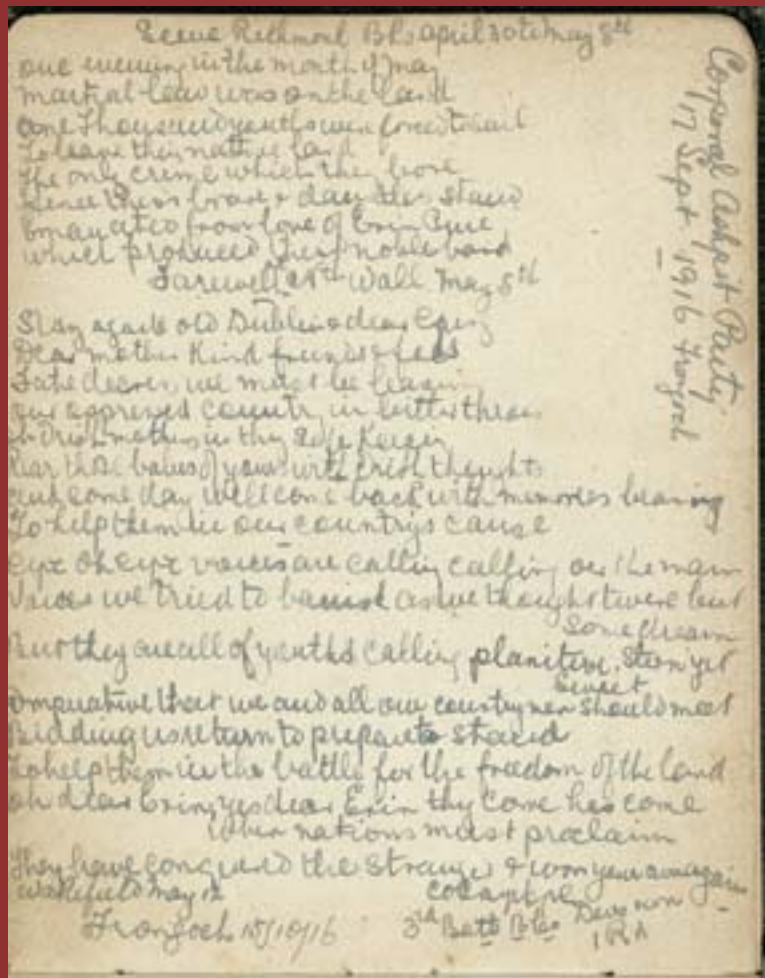 Scene Richmond Bks april 30 to May 8th
one evening in the month of may
martial law was on the land
one Thousand youths were forced to sail
To leave their native land
The only crime which they bore
these brave + dauntless
Emanated from love of Erin
which produced this noble band
Farewell Nth Wall May 8th
old Dublin dear
Dear mother Kind friends &
Fate decrees we must be leaving
our oppressed country in bitter throes
oh Irish mothers in thy safe Keeping
Rear those babes of yours with Irish thoughts
and some day well come back with memories bearing
To help them in our countrys cause
voices are calling calling oer the main
Voices we tried to banish as we thought twere but
some dream
But they are all of youths calling planitive, stern yet
sweet
that we and all our countrymen should meet
Bidding us return to prepare to stand
To help them in the battle for the freedom of the land
oh dear Erin, yes dear Erin thy has come
when nations must proclaim
They have conquered the stranger & won again
Wakefield May 12
Frongoch 15/10/16
3rd Batt
IRA
Corporal Ashpit Party
17 Sept 1916 Frongoch